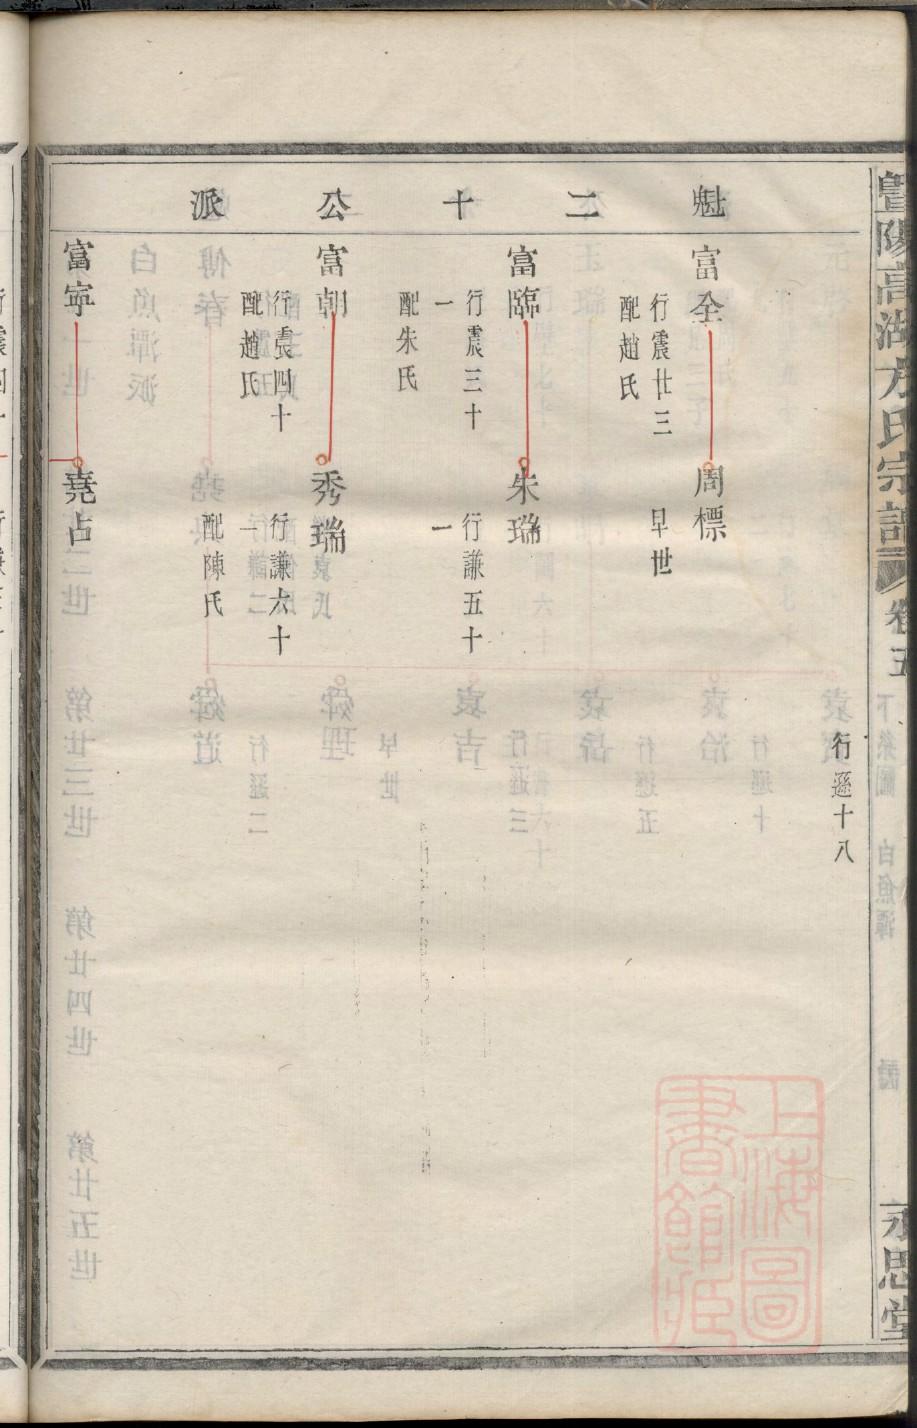 暨陽高湖方氏宗譜
卷五
永思堂
魁二十公派
行遜十八
富全
行震廿三
配趙氏
周標
早世
富臨
行震三十
一
配朱氏
朱瑞
行謙五十
一
富朝
行震四十
配趙氏
秀瑞
行謙六十
一
配陳氏
富寧
堯占
上海圖
書館藏